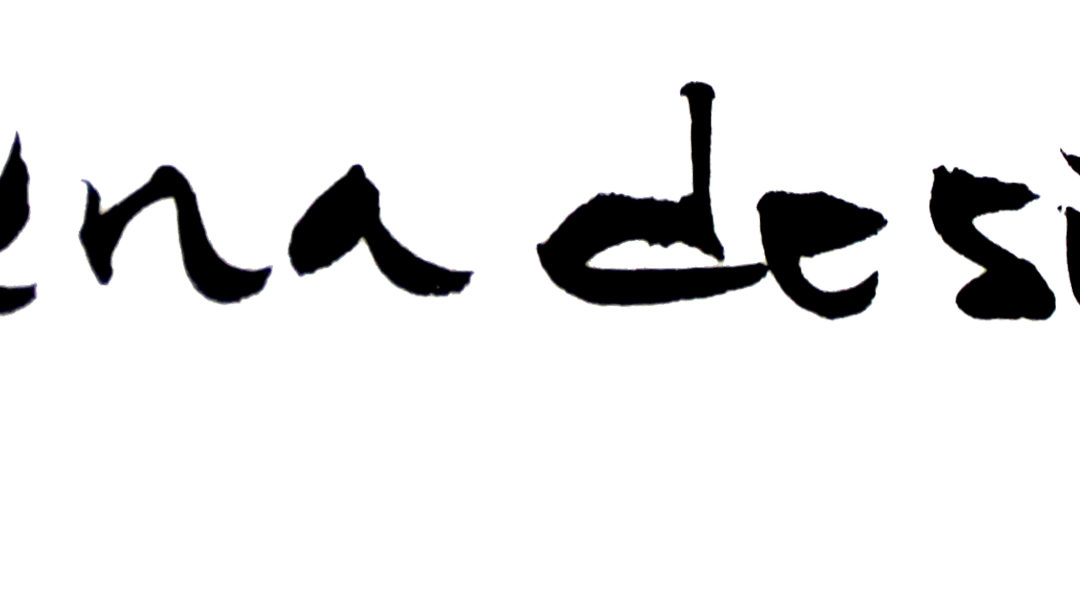 ena desi